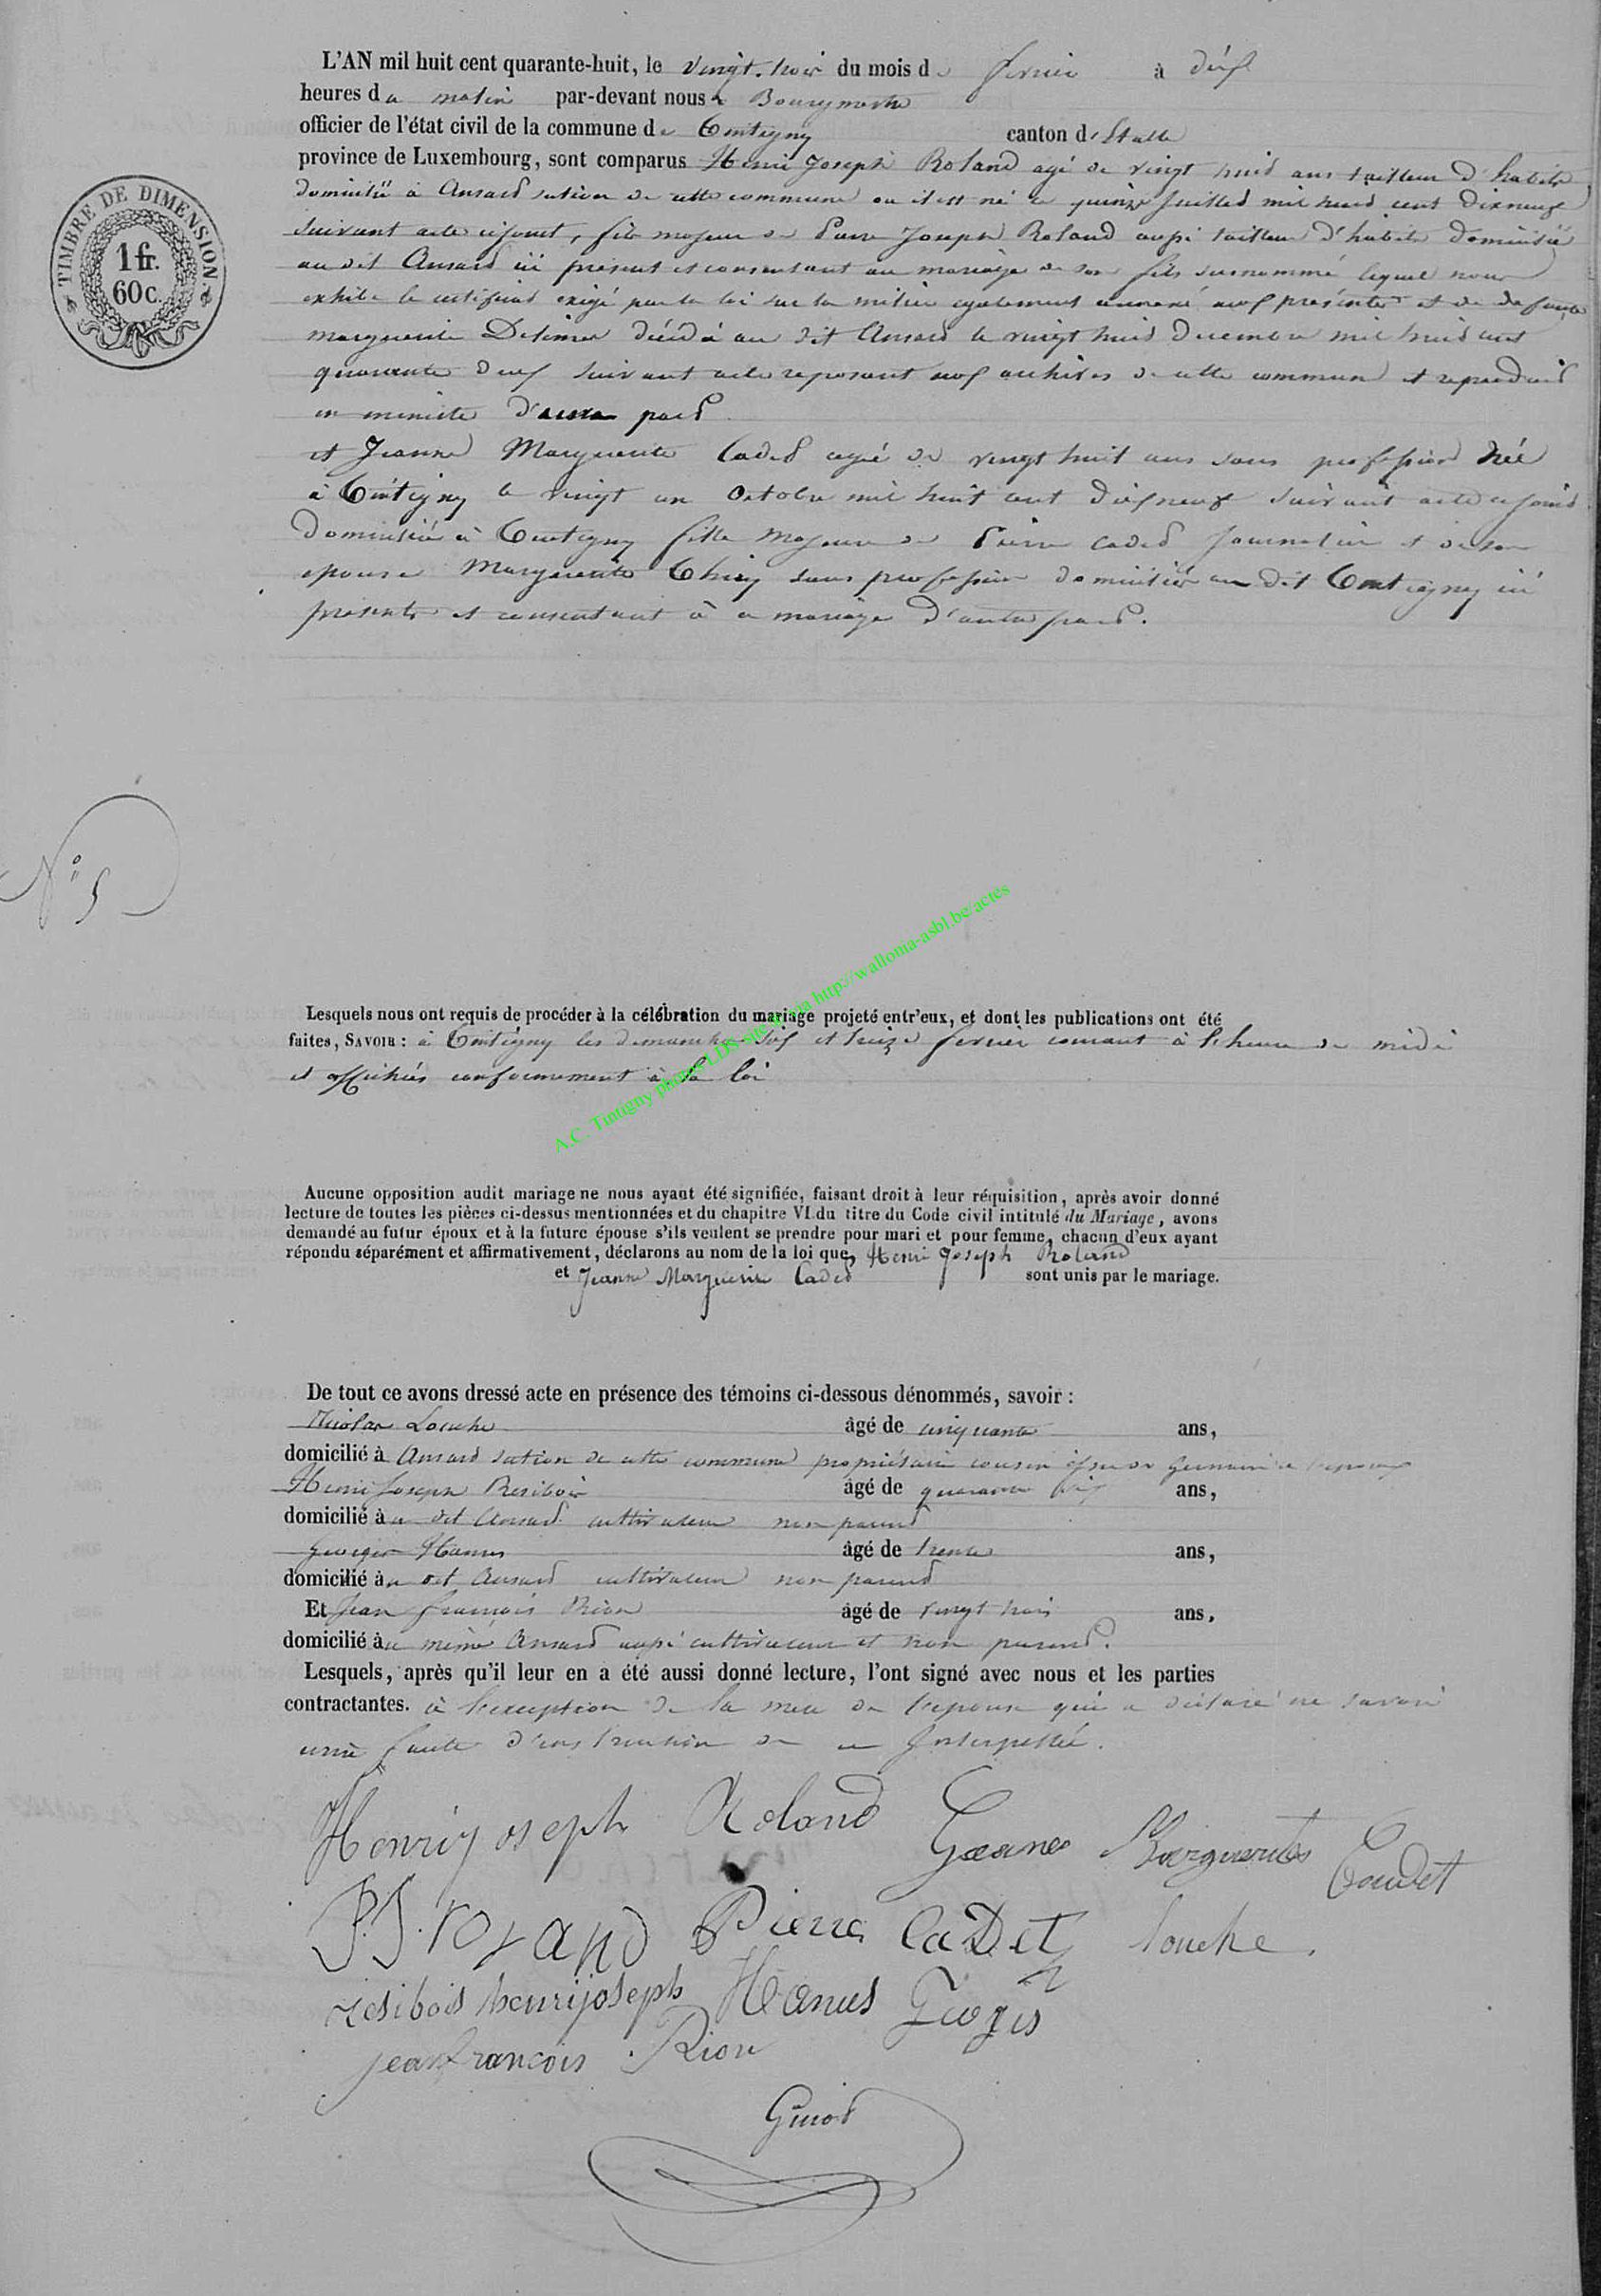 L'AN mil huit cent quarante-huit, le vingt-trois du mois de fevrier à dix
heures du matin par-devant nous Bourgmestre
officier de l'état civil de la commune de Tintigny canton d'Etalle
province de Luxembourg, sont comparus Henri Joseph Roland agé de vingt huit ans tailleur d'habits
domicilié à Ansart section de cette commune où il est né le quinze juillet mil huit cent dixneuf
suivant acte cijoint, fils majeur de Pierre Joseph Roland aussi tailleur d'habits domicilié
au dit Ansart ici présent et consentant au mariage de son fils surnommé lequel nous
exhibe le certificat exigé par la loi sur la milice également annexé aux présentes et de défunte
marguerite décédée au dit Ansart le vingt huit Decembre mil huit cent
quarante deux suivant acte reposant aux archives de cette commune et reproduit
en minute d'une part
et Jeanne Marguerite Cadet agée de vingt huit ans sans profession née
à Tintigny le vingt un Octobre mil huit cent dixneuf suivant acte cijoint
Domiciliée à Tintigny fille majeure de Pierre Cadet Journalier et de son
epouse Marguerite Thiry sans profession domiciliés au dit Tintigny ici
présents et consentant à ce mariage d'autre part.
TIMBRE DE DIMENSION
1 fr.
60 c.
N° 5
Lesquels nous ont requis de procéder à la célébration du mariage projeté entr'eux, et dont les publications ont été
faites, SAVOIR : à Tintigny les dimanches six et treize fevrier courant à l'heure de midi
et affichées conformement à la loi
A.C. Tintigny photos LDS site via http://wallonia-asbl.be/actes
Aucune opposition audit mariage ne nous ayant été signifiée, faisant droit à leur réquisition, après avoir donné
lecture de toutes les pièces ci-dessus mentionnées et du chapitre VI du titre du Code civil intitulé du Mariage, avons
demandé au futur époux et à la future épouse s'ils veulent se prendre pour mari et pour femme, chacun d'eux ayant
répondu séparément et affirmativement, déclarons au nom de la loi que Henri Joseph Roland
et Jeanne Marguerite Cadet sont unis par le mariage.
De tout ce avons dressé acte en présence des témoins ci-dessous dénommés, savoir :
Nicolas Louche âgé de cinquante ans,
domicilié à Ansart section de cette commune propriétaire cousin issu de germain de l'epoux
Henri Joseph Resibois âgé de quarante ans,
domicilié au dit Ansart cultivateur non parent
Georges Hanus âgé de trente ans,
domicilié au dit Ansart cultivateur non parent
Et Jean françois Rion âgé de vingt trois ans,
domicilié au même Ansart aussi cultivateur et non parent.
Lesquels, après qu'il leur en a été aussi donné lecture, l'ont signé avec nous et les parties
contractantes. à l'exception de la mere de l'epouse qui a déclaré ne savoir
ecrire faute d'instruction de ce interpellée.
Henrij oseph Roland Geane Marguerite Caudet
P.J. roland Pierre CaDet Louche
resibois henrijoseph Hanus Georges
jean françois Rion
Guiot